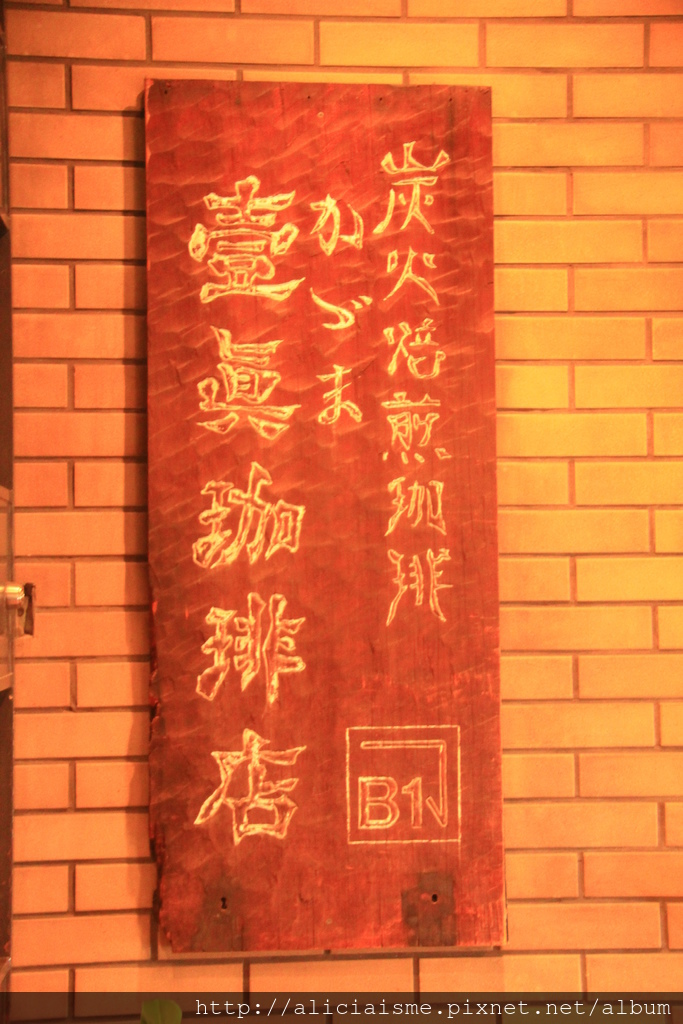 炭火焙煎珈琲
かづま
壹眞珈琲店
B1
http://aliciaisme.pixnet.net/album